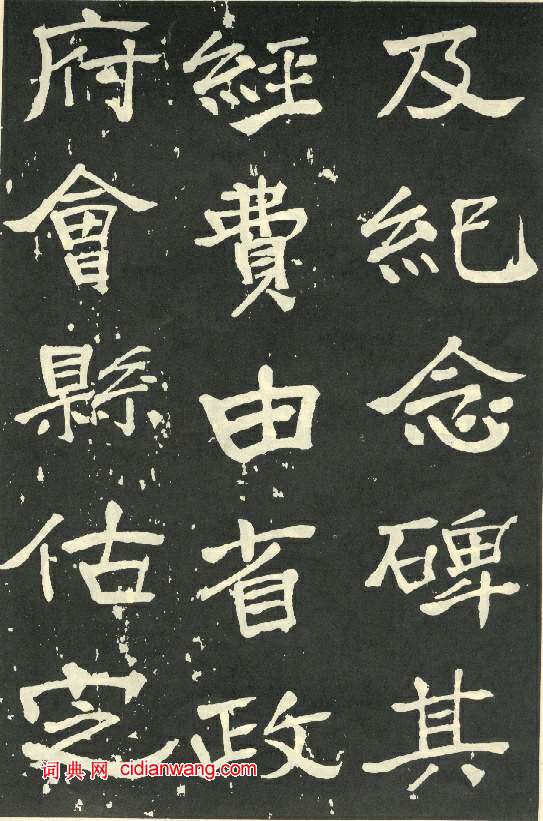 及紀念碑其
經費由省政
府會縣估定
词典网 cidianwang.com